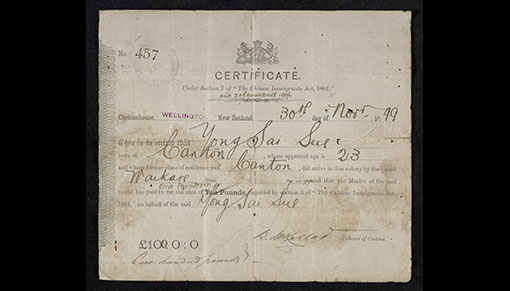 No. 457
CERTIFICATE.
Under Section 7 of "The Chinese Immigrants Act, 1881."
Customhouse, WELLINGTON New Zealand, 30th day of Novr 1899
This is to certify that Yong Sai Sue
born at Canton whose apparent age is 23
and whose former place of residence was Canton, did arrive in this colony by the vessel
and that the Master of the said
vessel has paid to me the sum of One hundred Ten Pounds required by section 5 of "The Chinese Immigrants Act,
1881," on behalf of the said Yong Sai Sue
Collector of Customs.
£100 0 : 0
One hundred pounds